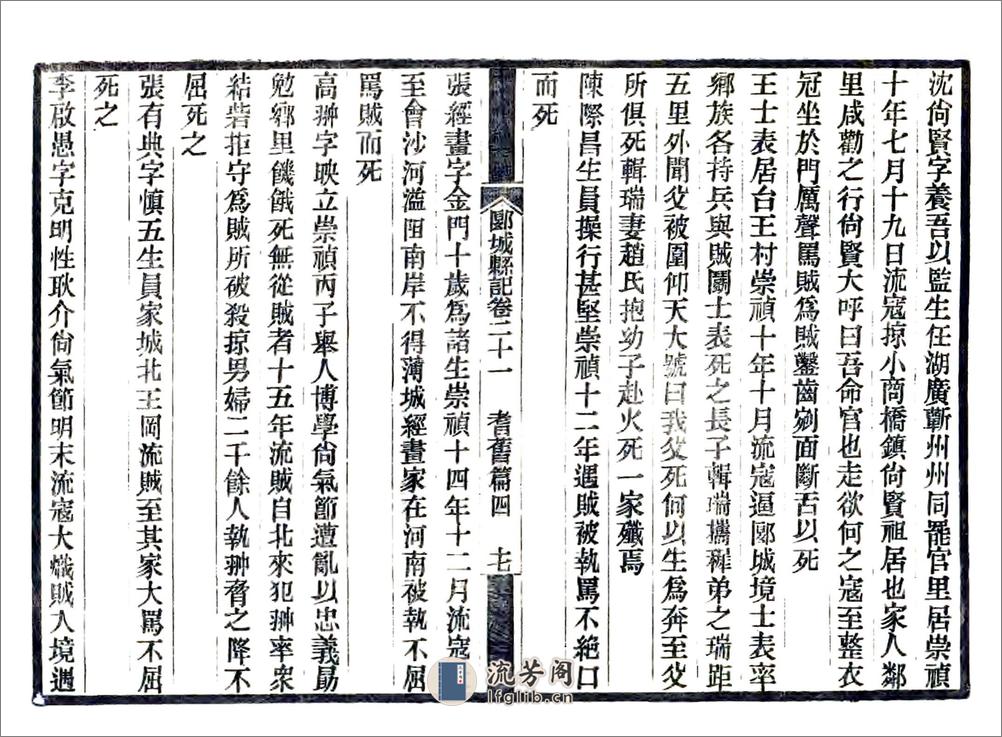 沈尙賢字養吾以監生任湖廣蘄州州同罷官里居崇禎
十年七月十九日流寇掠小商橋鎭尙賢祖居也家人鄰
里咸勸之行尙賢大呼曰吾命官也走欲何之寇至整衣
冠坐於門厲聲罵賊爲賊鑿齒剜面斷舌以死
王士表居台王村崇禎十年十月流寇逼郾城境士表率
鄉族各持兵與賊鬭士表死之長子輯瑞攜稚弟之瑞距
五里外聞父被圍仰天大號曰我父死何以生爲奔至父
所俱死輯瑞妻趙氏抱幼子赴火死一家殲焉
陳際昌生員操行甚堅崇禎十二年遇賊被執罵不絕口
而死
郾城縣記卷二十一 耆舊篇四 七
張經畫字金門十歲爲諸生崇禎十四年十二月流寇
至會沙河溢阻南岸不得薄城經畫家在河南被執不屈
罵賊而死
高翀字映立崇禎丙子舉人博學尙氣節遭亂以忠義勗
勉鄉里饑餓死無從賊者十五年流賊自北來犯翀率衆
結砦拒守爲賊所破殺掠男婦二千餘人執翀脅之降不
屈死之
張有典字慎五生員家城北王岡流賊至其家大罵不屈
死之
李啟愚字克明性耿介尙氣節明末流寇大熾賊入境遇
流芳阁
lfglib.cn